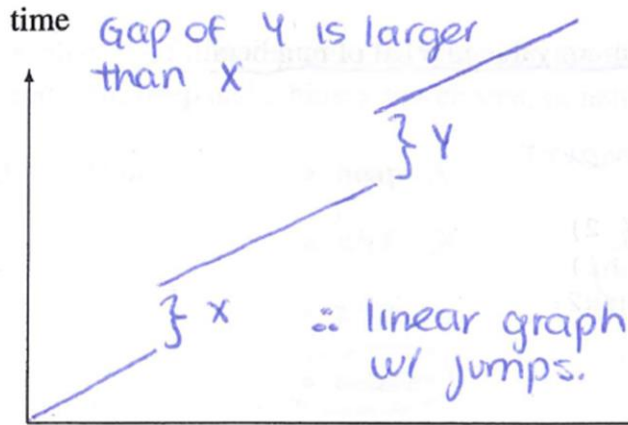 time
Gap of Y is larger
than X
} Y
} X
∴ linear graph
w/ jumps.